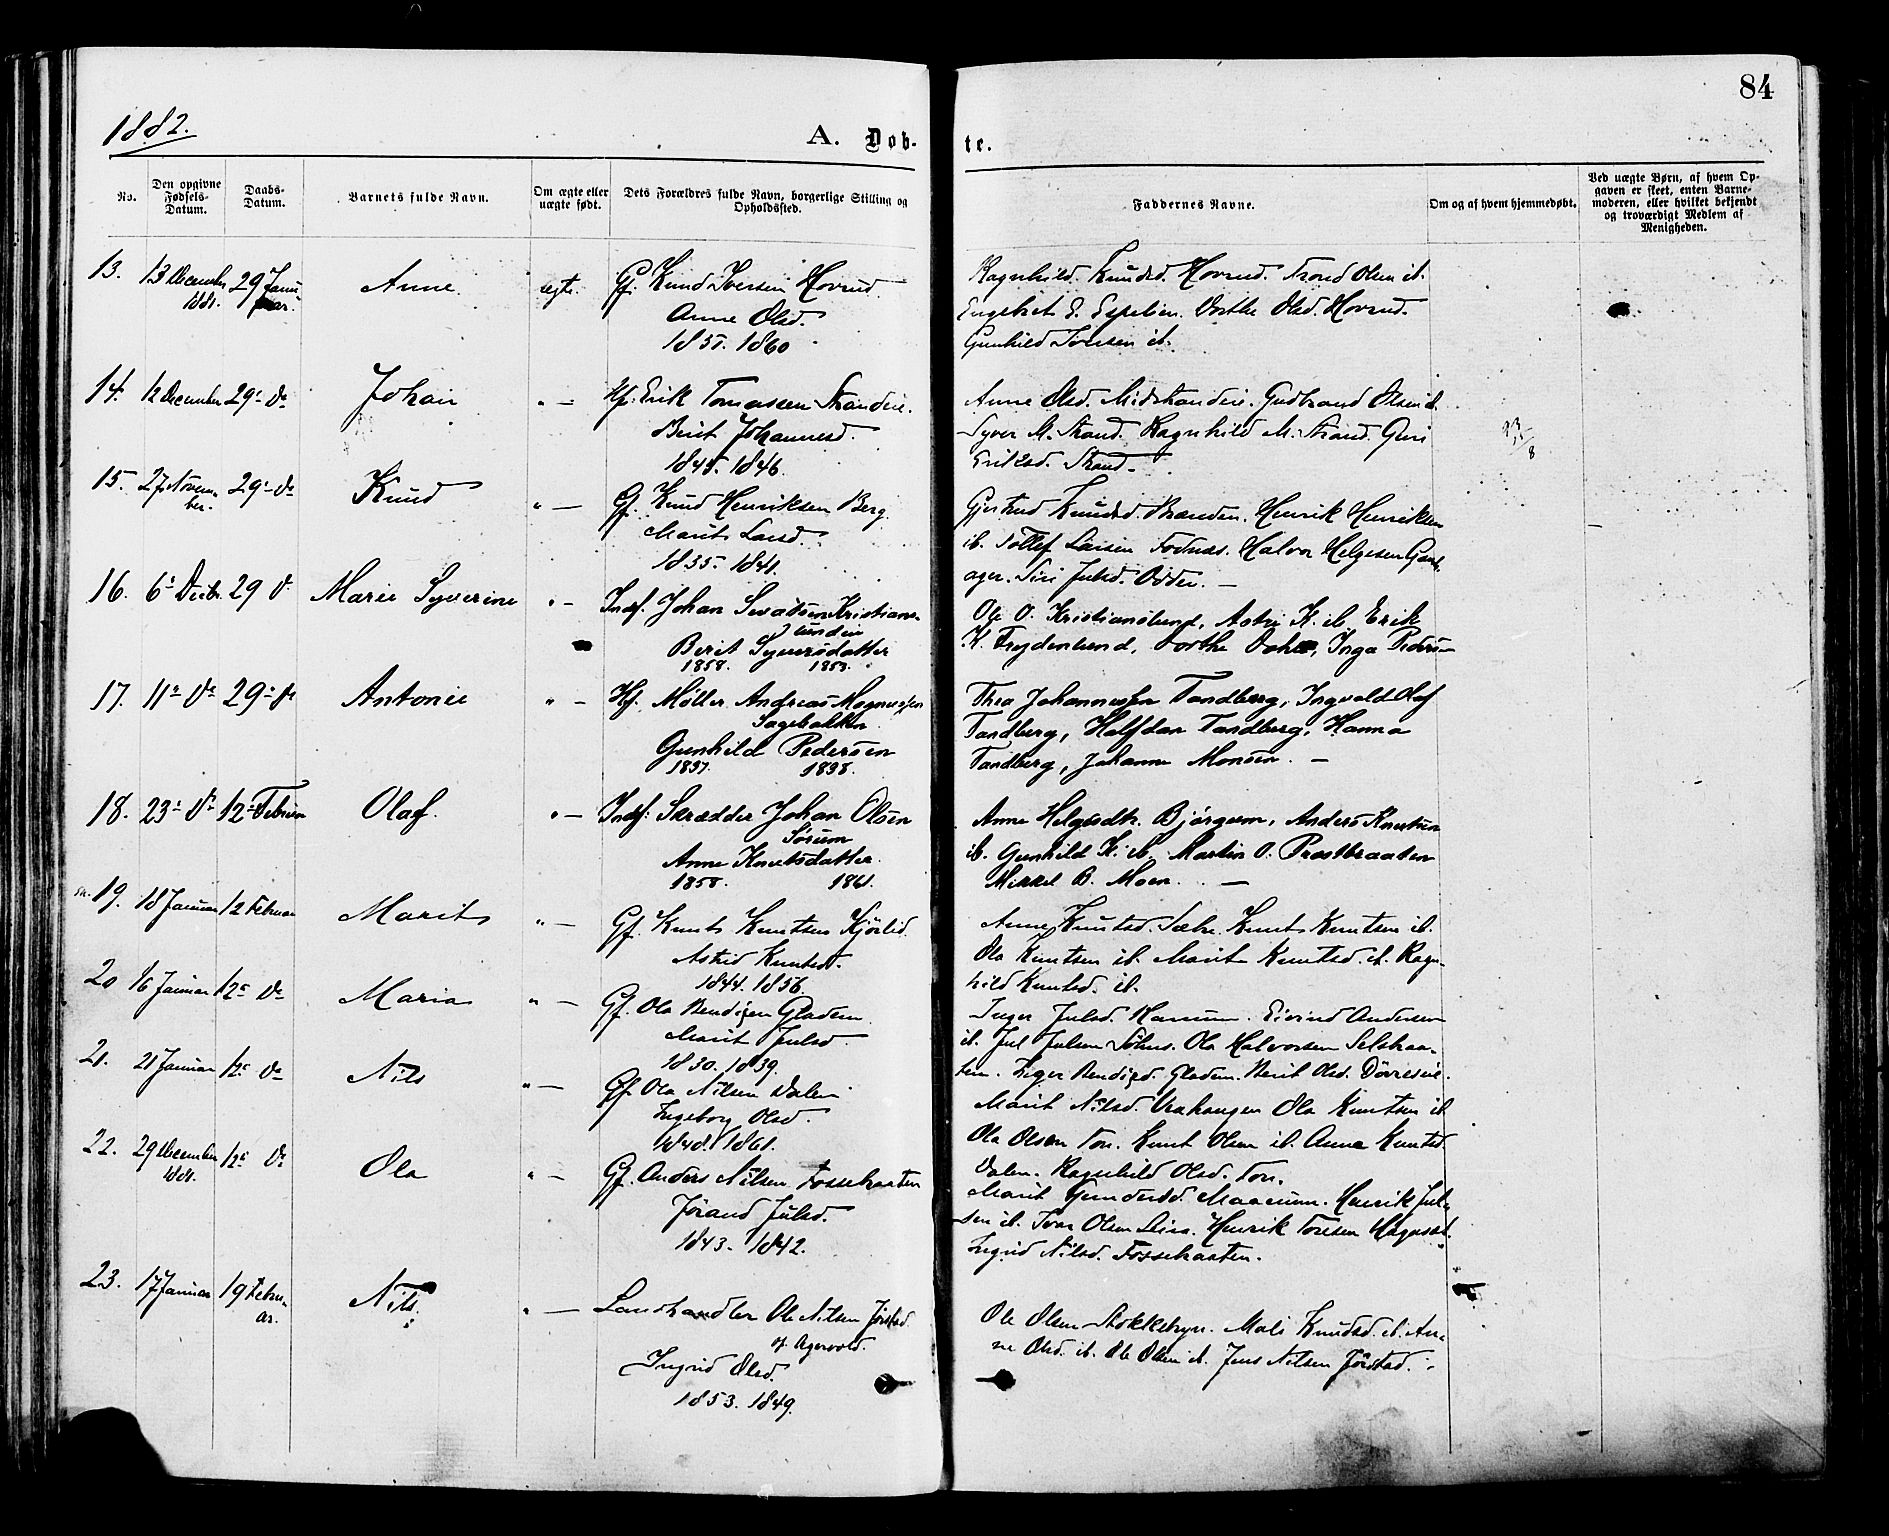 84
1882.
A. Døb-
te.
No.
Den opgivne Fødsels-Datum.
Daabs-Datum.
Barnets fulde Navn.
Om ægte eller uægte født.
Dets Forældres fulde Navn, borgerlige Stilling og Opholdssted.
Faddernes Navne.
Om og af hvem hjemmedøbt.
Ved uægte Børn, af hvem Op-
gaven er skeet, enten Barne-
moderen, eller hvilket bekjendt
og troværdigt Medlem af
Menigheden.
13. 13 December 1881. 29 Januar. Anne. ægte. Gf. Knud Iversen Hovrud.
Anne Olsd.
1857. 1860
Ragnhild Knudsd. Hovrud. Trond Olsen ib.
Engebret E. Espelien. Dorthe Olsd. Hovrud.
Gunhild Iversen ib.
14. 12 December 29 Do Johan " — Hf. Erik Tomassen
Berit Johannesd.
1845. 1846.
Anne Olsd. Gudbrand Olsen ib.
Syver M. Strand. Ragnhild M. Strand. Guri
Eriksd. Strand.
15. 27 November. 29 Do Knud " — Gf. Knud Henriksen Berg.
Marit Larsd.
1835. 1841.
Gjertrud Knudsd. Henrik Henriksen
ib. Tollef Larsen Fodnæs. Halvor Helgesen
ager. Siri Julsd. Odden. —
16. 6 Decbr. 29 D. Marie Syverine " — Indf. Johan Kristians-
lundeie
Berit Syversdatter
1858. 1853.
Ole O. Kristianslund, Astri K. ib. Erik
K. Frydenlund, Dorthe Inga Pedersen
17. 11 Do 29 Do Antonie " — Hf. Møller Andreas Magnussen
Sagebakken
Gunhild Pedersen
1837. 1838.
Thea Johannessen Tandberg, Ingvald Olaf
Tandberg, Halfdan Tandberg, Hanna
Tandberg, Johanne Monsen. —
18. 23 Do 12 Februar Olaf. " — Indf. Skrædder Johan Olsen
Sørum
Anne Knutsdatter.
1858. 1861.
Anne Helgesdtr. Bjørgum, Anders Knutsen
ib. Gunhild K. ib. Martin O. Præstbraaten
Mikkel B. Moen. —
19. 18 Januar 12 Februar Marit " — Gf. Knut Knutsen Kjørlid.
Astrid Knutsd.
1844. 1856.
Anne Knutsd. Sæbr. Knut Knutsen ib.
Ola Knutsen ib. Marit Knutsd. ib. Ragn-
hild Knutsd. ib.
20 16 Januar 12 Do Maria " — Gf. Ola Bendigsen Gladem.
Marit Julsd.
1830. 1839.
Inger Julsd. Eivind Andersen
ib. Jul Julsen Ola Halvorsen
ten. Inger Bendigsd. Gladem. Berit Olsd.
21. 21 Januar 12 Do Nils " — Gf. Ola Nilsen Dalen
Ingeborg Olsd.
1848. 1861.
Marit Nilsd. Ola Knutsen ib.
Ola Olsen Ton. Knut Olsen ib. Anne Knutsd.
Dalen. Ragnhild Olsd. Ton.
22. 29 December 1881. 12 Do Ola " — Gf. Anders Nilsen Fossebraaten
Jørand Julsd.
1843. 1842.
Marit Henrik Jul-
sen ib. Ivar Olsen Henrik Toresen
Ingrid Nilsd. Fossebraaten.
23. 17 Januar 19 Februar. Nils. " — Landhandler Ole Nilsen Jørstad
af Agervold.
Ingrid Olsd.
1853. 1849.
Ole Olsen Stokkebryn. Mali Knudsd. ib. An-
ne Olsd. ib. Ole Olsen ib. Jens Nilsen Jørstad.